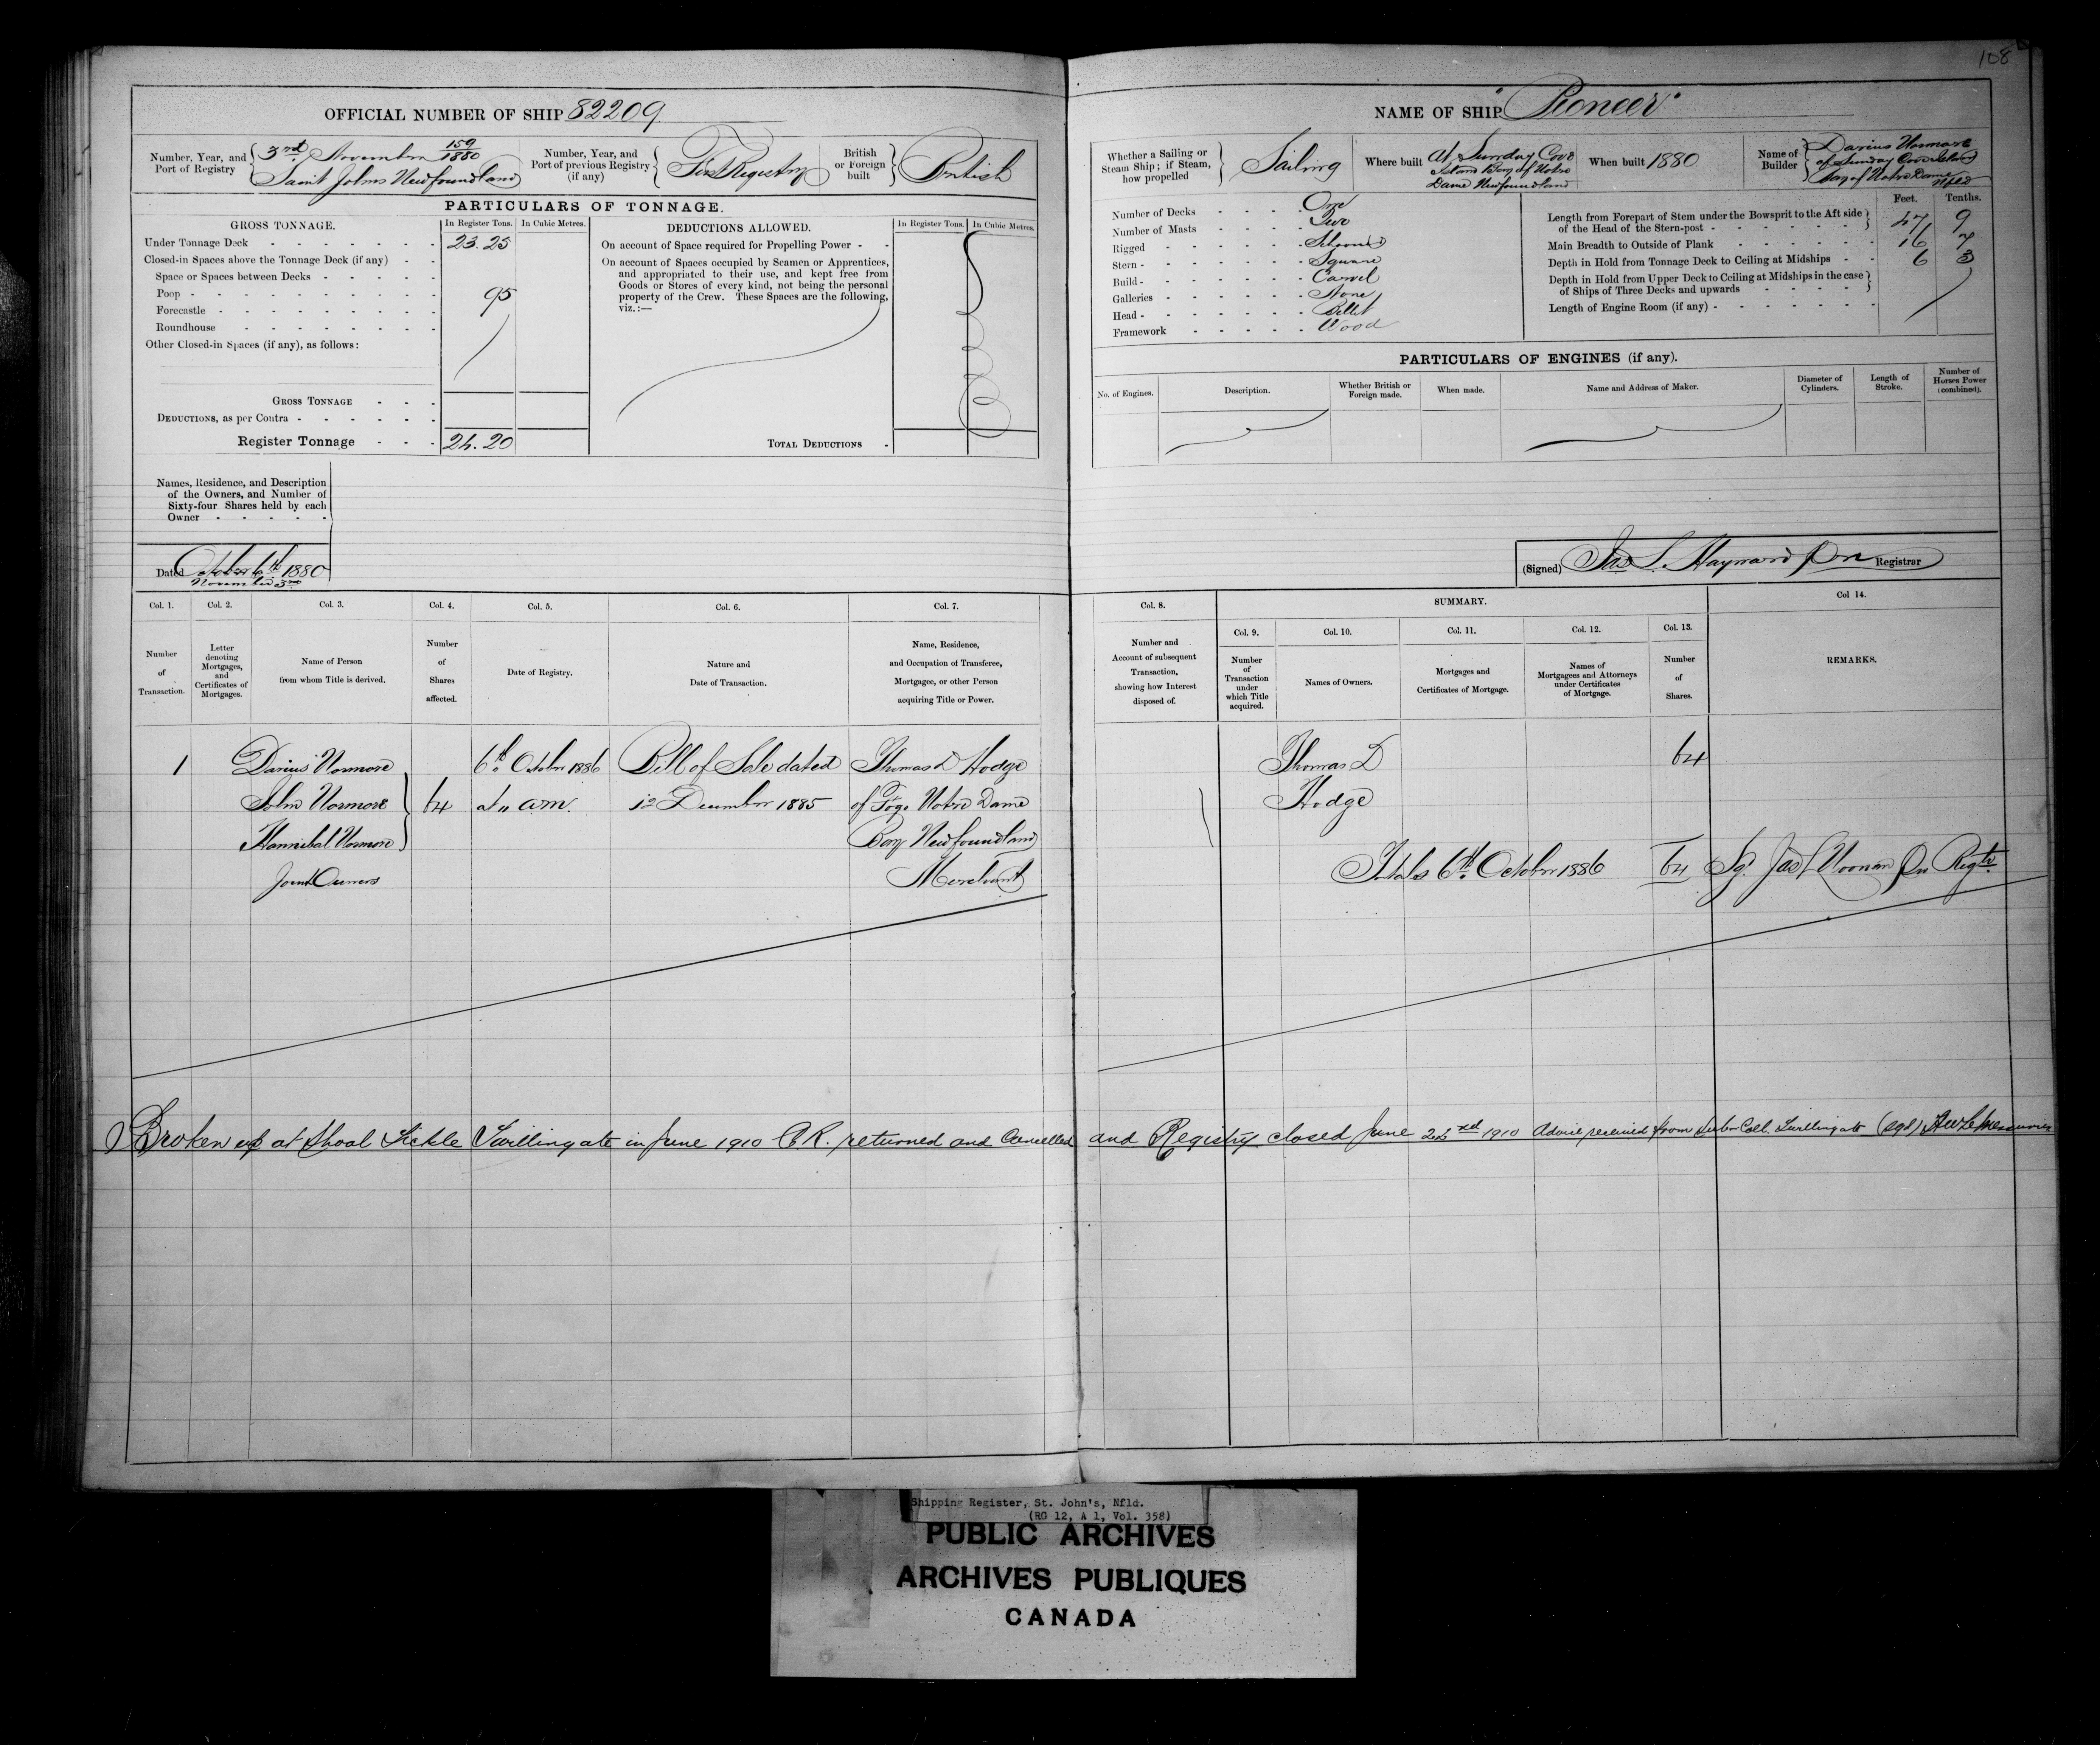 108
OFFICIAL NUMBER OF SHIP 82209
Number, Year, and Port of Registry
3rd November 159/1880
Saint Johns Newfoundland
Number, Year, and Port of previous Registry (if any)
First Registry
British or Foreign built
British
PARTICULARS OF TONNAGE.
GROSS TONNAGE.
In Register Tons.
In Cubic Metres.
Under Tonnage Deck 23.25
Closed-in Spaces above the Tonnage Deck (if any)
Space or Spaces between Decks
Poop 95
Forecastle
Roundhouse
Other Closed-in Spaces (if any), as follows:
GROSS TONNAGE
DEDUCTIONS, as per Contra
Register Tonnage 24.20
DEDUCTIONS ALLOWED.
In Register Tons.
In Cubic Metres.
On account of Space required for Propelling Power
On account of Spaces occupied by Seamen or Apprentices,
and appropriated to their use, and kept free from
Goods or Stores of every kind, not being the personal
property of the Crew. These Spaces are the following,
viz.:—
TOTAL DEDUCTIONS
Names, Residence, and Description
of the Owners, and Number of
Sixty-four Shares held by each
Owner
Dated October 6th 1880
November 3rd
NAME OF SHIP "Pioneer"
Whether a Sailing or Steam Ship; if Steam, how propelled
Sailing
Where built
At Sunday Cove
Island Bay of Notre
Dame Newfoundland
When built 1880
Name of Builder
Darius Normore
of Sunday Cove Island
Bay of Notre Dame
Nfld
Number of Decks One
Number of Masts Two
Rigged Schooner
Stern Square
Build Carvel
Galleries None
Head Billet
Framework Wood
Feet. Tenths.
Length from Forepart of Stem under the Bowsprit to the Aft side
of the Head of the Stern-post 47 9
Main Breadth to Outside of Plank 16 7
Depth in Hold from Tonnage Deck to Ceiling at Midships 6 3
Depth in Hold from Upper Deck to Ceiling at Midships in the case
of Ships of Three Decks and upwards
Length of Engine Room (if any)
PARTICULARS OF ENGINES (if any).
No. of Engines.
Description.
Whether British or Foreign made.
When made.
Name and Address of Maker.
Diameter of Cylinders.
Length of Stroke.
Number of Horses Power (combined).
(Signed) Jas S. Hayward Registrar
Col. 1. Col. 2. Col. 3. Col. 4. Col. 5. Col. 6. Col. 7.
Number of Transaction.
Letter denoting Mortgages, and Certificates of Mortgages.
Name of Person from whom Title is derived.
Number of Shares affected.
Date of Registry.
Nature and Date of Transaction.
Name, Residence, and Occupation of Transferee, Mortgagee, or other Person acquiring Title or Power.
Col. 8.
SUMMARY.
Col. 9. Col. 10. Col. 11. Col. 12. Col. 13. Col 14.
Number and Account of subsequent Transaction, showing how Interest disposed of.
Number of Transaction under which Title acquired.
Names of Owners.
Mortgages and Certificates of Mortgage.
Names of Mortgagees and Attorneys under Certificates of Mortgage.
Number of Shares.
REMARKS.
1 Darius Normore 6th October 1886 Bill of Sale dated Thomas D Hodge
John Normore 64 at 11 am. 12 December 1885 of Fogo Notre Dame
Hannibal Normore Bay Newfoundland
Joint Owners Merchant
Thomas D 64
Hodge
Totals 6th October 1886 64 Sgd Jas L Noonan Regtr
Broken up at Shoal Tickle Twillingate in June 1910 C.R. returned and Cancelled and Registry closed June 22nd 1910 Advice received from Sub Coll. Twillingate (sgd)
Shipping Register, St. John's, Nfld.
(RG 12, A 1, Vol. 358)
PUBLIC ARCHIVES
ARCHIVES PUBLIQUES
CANADA